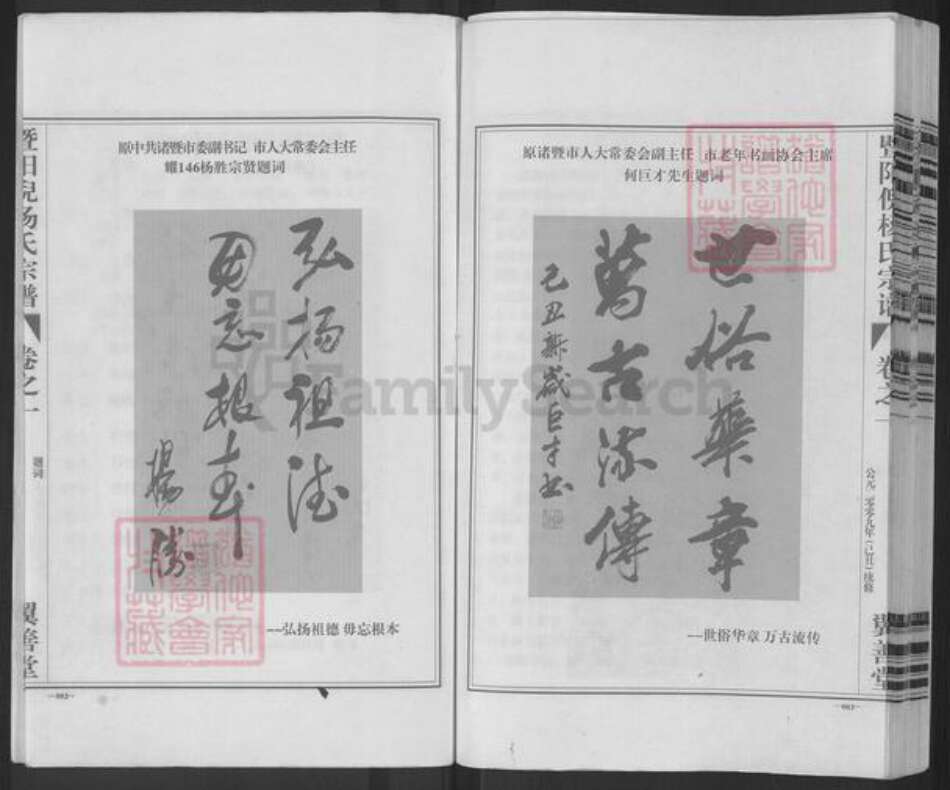 暨阳倪杨氏宗谱
卷之一
题词
翼善堂
—002—
原中共诸暨市委副书记 市人大常委会主任
耀146杨胜宗贤题词
弘扬祖德
毋忘根本
楊勝
---弘扬祖德 毋忘根本
原诸暨市人大常委会副主任 市老年书画协会主席
何巨才先生题词
世俗華章
萬古流傳
己丑新歲巨才书
---世俗华章 万古流传
暨阳倪杨氏宗谱
卷之一
公元二零零九年(己丑)续修
翼善堂
—003—
FamilySearch